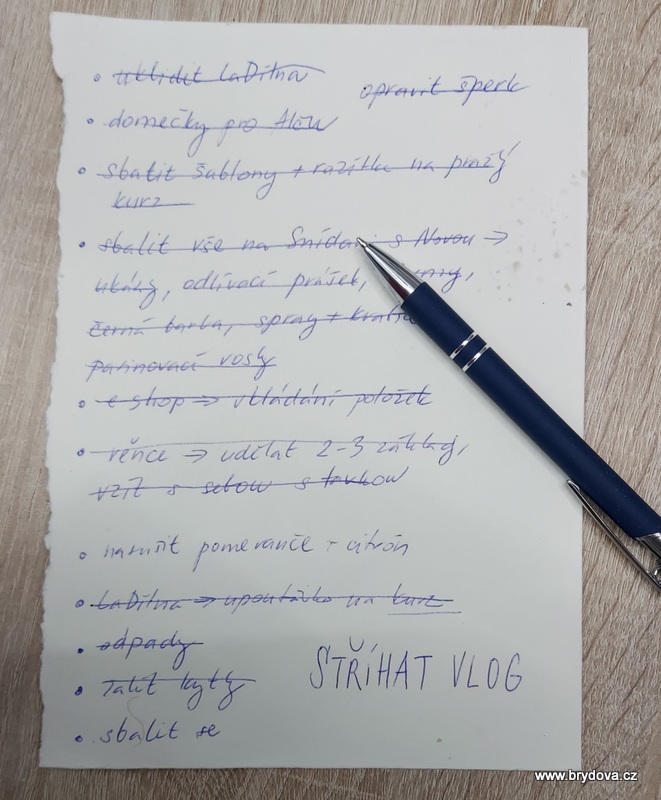 uklidit LaDílna
opravit šperk
domečky pro Alču
sbalit šablony + razítka na pražský
kurz
sbalit vše na Snídani s Novou →
ukázy, odlívací prášek,
černá barva, spray +
patinovací vosky
e shop ⇒ vkládání položek
věnce → udělat 2-3 základy,
vzít s sebou s
nasušit pomeranče + citrón
LaDílna ⇒ upoutávka na kurz
odpady
zalít kytky
STŘÍHAT VLOG
sbalit se
www.brydova.cz